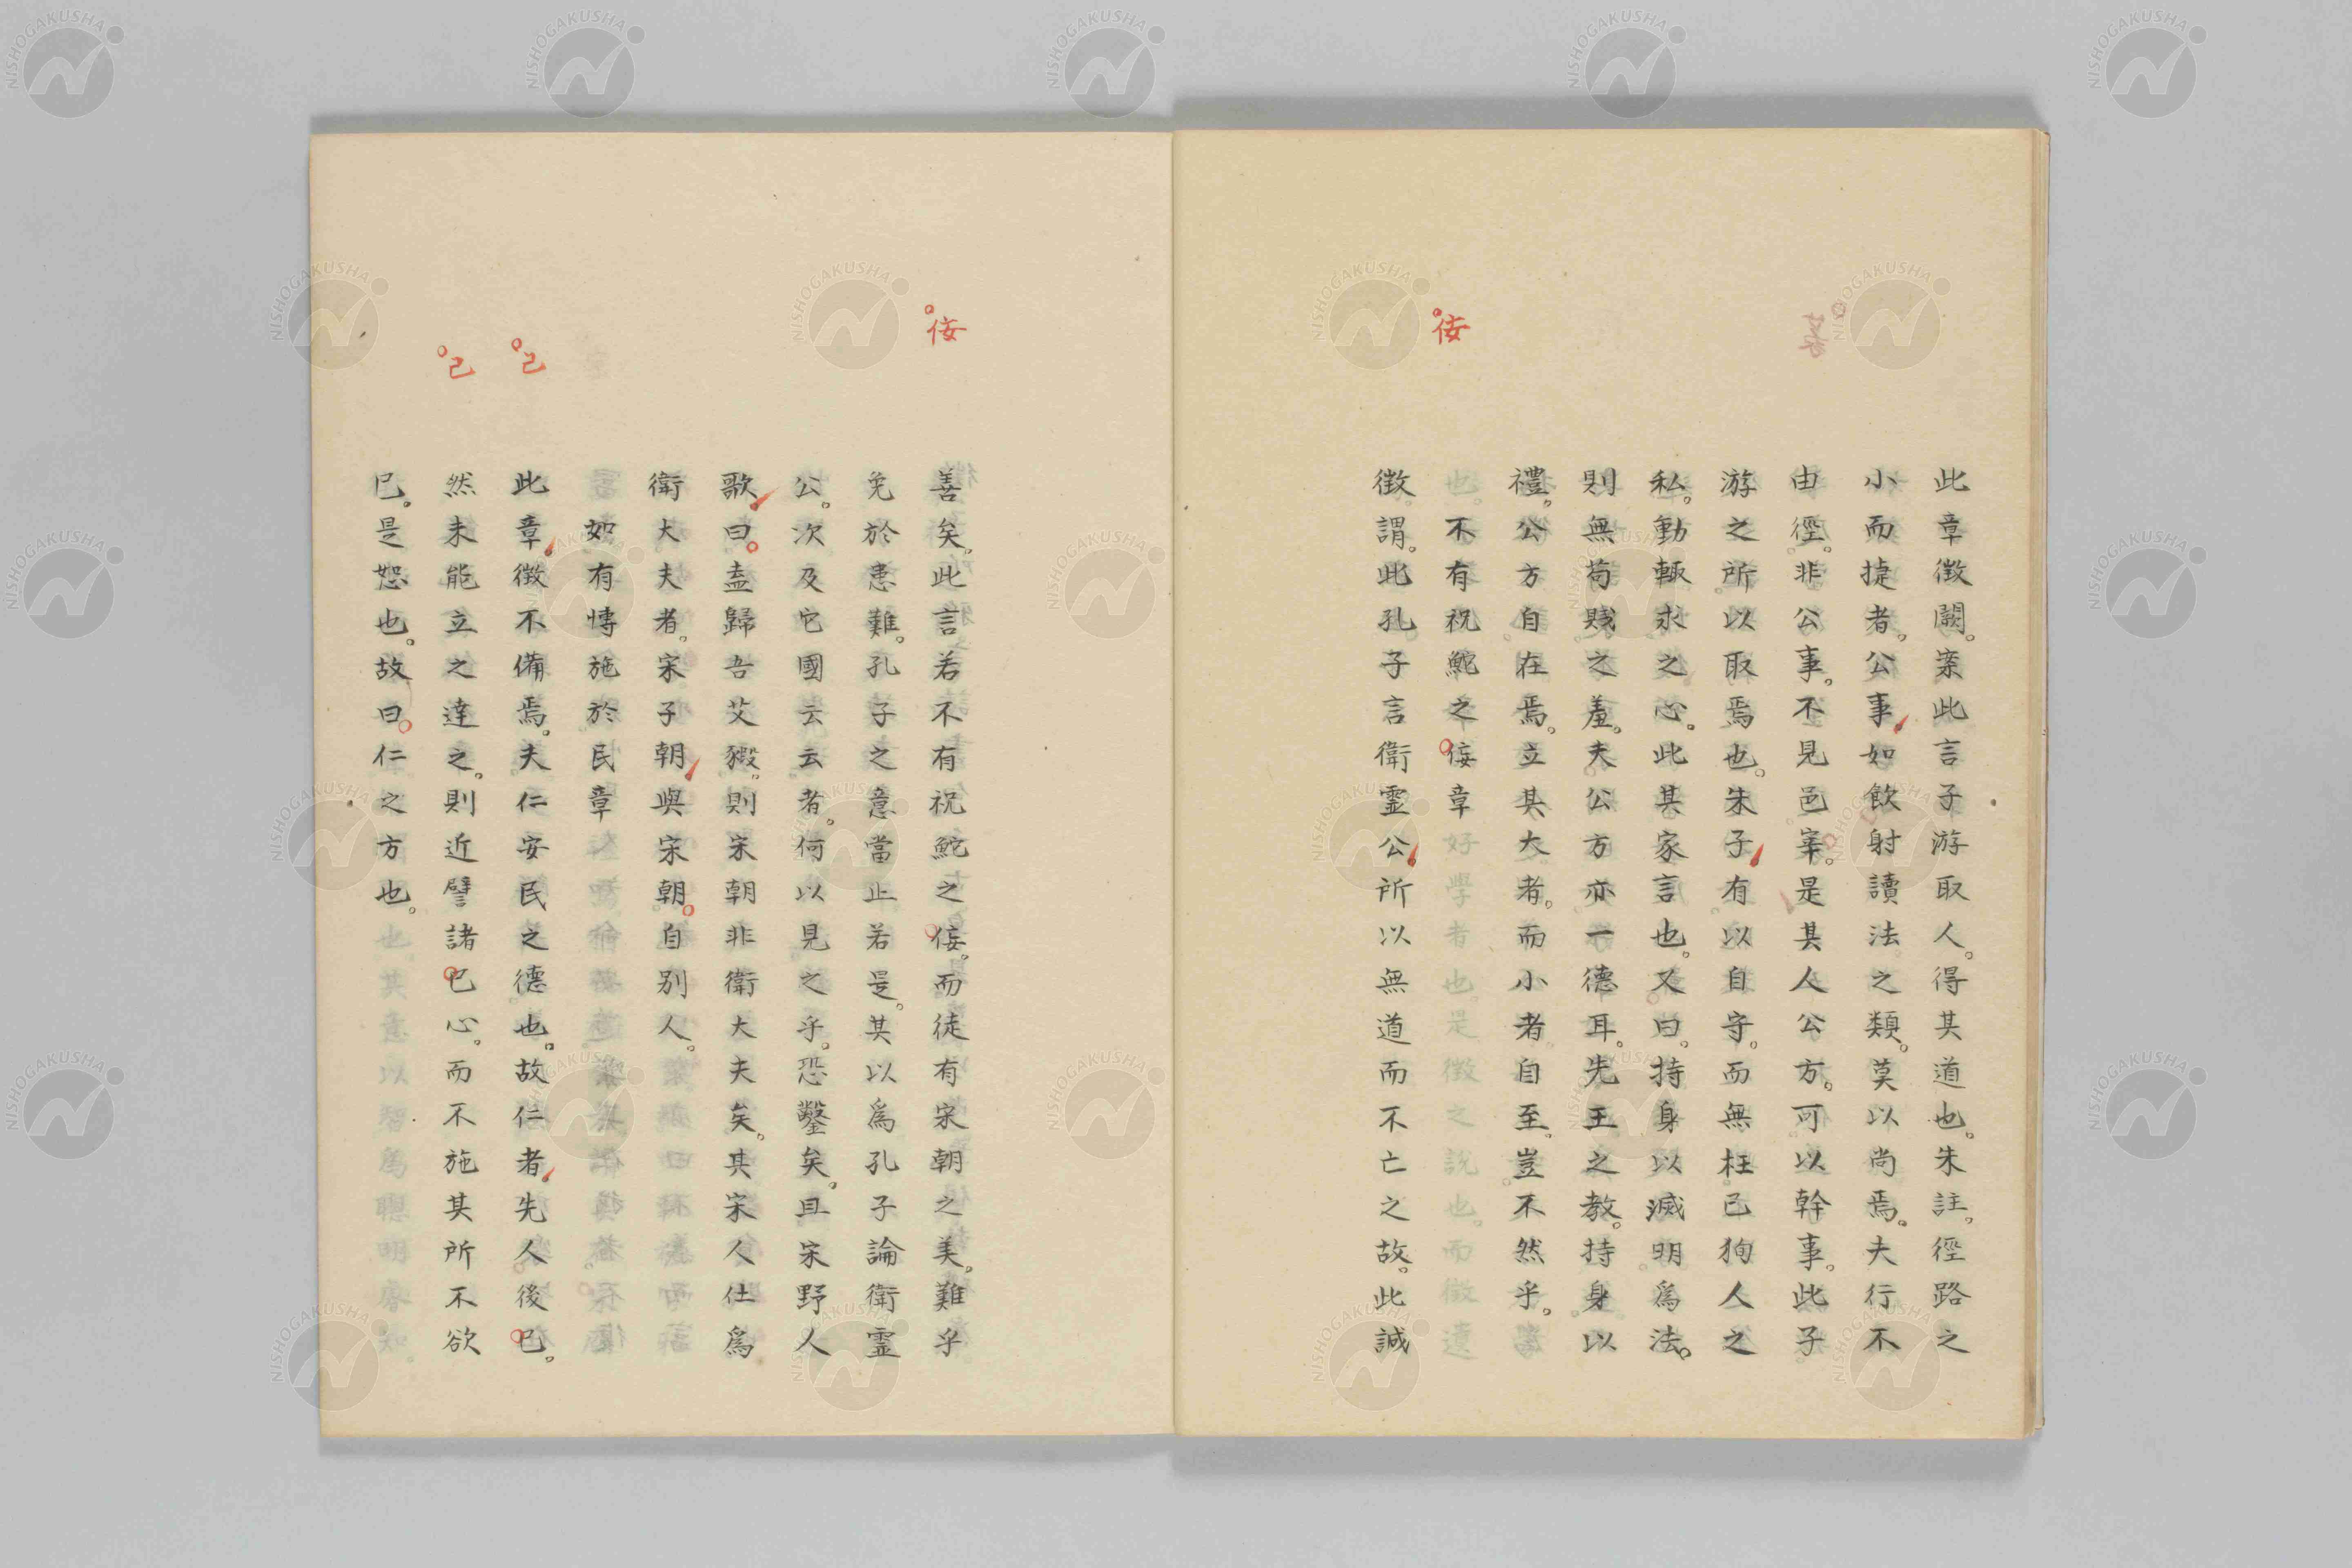 此章徴闕。案此言子游取人。得其道也。朱註。徑路之
小而捷者。公事如飲射讀法之類。莫以尚焉。夫行不
由徑。非公事。不見邑宰。是其人公方。可以幹事。此子
游之所以取焉也。朱子有以自守。而無枉己狥人之
私。動輙求之心。此其家言也。又曰。持身以滅明爲法。
則無苟賤之羞。夫公方亦一德耳。先王之教。持身以
禮。公方自在焉。立其大者。而小者自至。豈不然乎。
佞
不有祝鮀之佞章
徴謂。此孔子言衛霊公所以無道而不亡之故。此誠
佞
善矣。此言若不有祝鮀之佞。而徒有宋朝之美。難乎
免於患難。孔子之意當止若是。其以爲孔子論衛霊
公。次及它國云云者。何以見之乎。恐鑿矣。且宋野人
歌曰。盍歸吾艾豭。則宋朝非衛大夫矣。其宋人仕爲
衛大夫者。宋子朝與宋朝自別人。
如有博施於民章
己
此章徴不備焉。夫仁安民之德也。故仁者先人後巳。
己
然未能立之達之。則近譬諸巳心。而不施其所不欲
巳。是恕也。故曰。仁之方也。